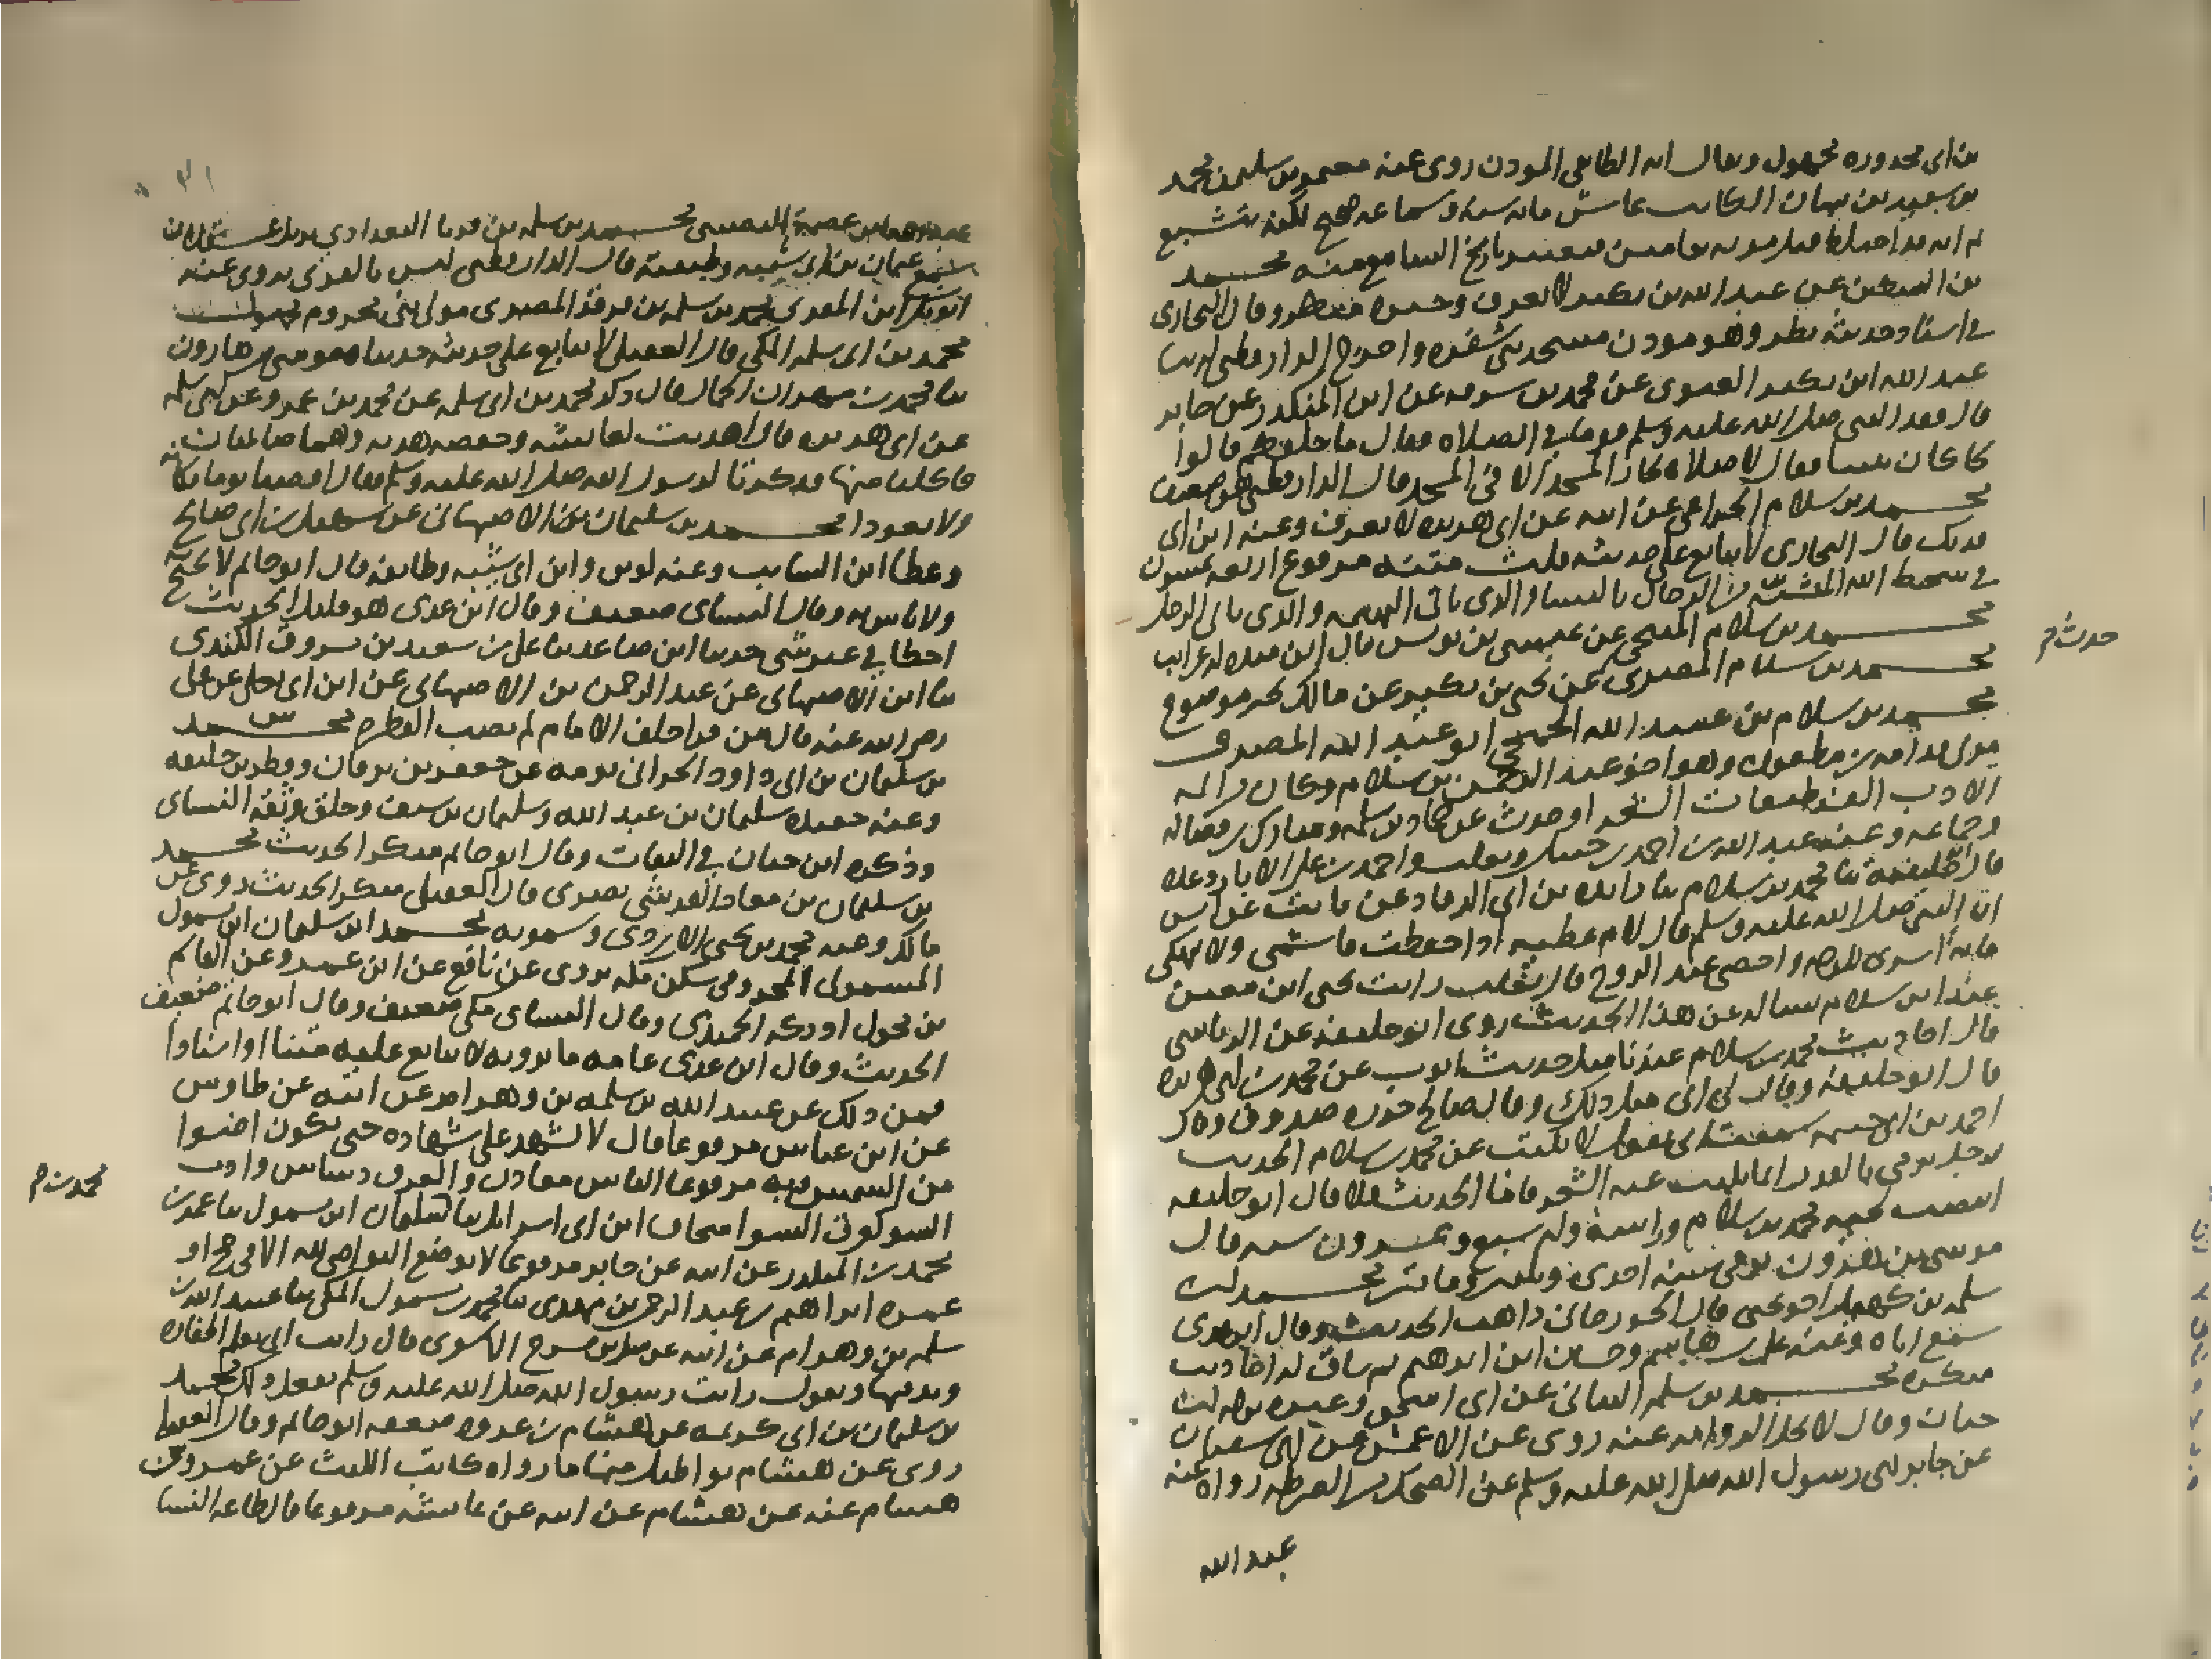 بن ابي محذوره مجهول ويقال انه الطايفي الموذن روى عنه معمر بن سليمن محمد
بن سعيد بن نبهان الكاتب عاش مايه سنه وسماعه صحيح لكنه يتشيع
ثم انه قد اختلط قبل موته بعامين فيعتبر تاريخ السامع منه محمد
بن السكين عن عبد الله بن بكير لا يعرف وخبره منكر وقال البخاري
في اسناد حديثه نظر وهو موذن مسجد بني شقره واخرج الدارقطني له ثنا
عبد الله ابن بكير الغنوي عن محمد بن سوقه عن ابن المنكدر عن جابر
قال فقد النبي صلى الله عليه وسلم قوما في الصلاه فقال ما خلفكم قالوا
لحا كان بيننا فقال لا صلاه لجار المسجد الا في المسجد قال الدارقطني هو ضعيف
محمد بن سلام الخزاعي عن ابيه عن ابي هريره لا يعرف وعنه ابن ابي
فديك قال البخاري لا يتابع على حديثه قلت متنه مرفوع اربعه يمسون
في سخط الله المتشبه من الرجال بالنساء والذي ياتي البهيمه والذي ياتي الرجل
محمد بن سلام المنبجي عن عيسى بن يونس قال ابن منده له غرايب
محمد بن سلام المصري عن يحيى بن بكير عن مالك بخبر موضوع
محمد بن سلام بن عبيد الله الجمحي ابو عبد الله المصري
مولى قدامه بن مظعون وهو اخو عبد الرحمن بن سلام وكان من ايمه
الادب الف طبقات الشعرا وحدث عن حماد بن سلمه ومبارك بن فضاله
وجماعه وعنه عبد الله بن احمد بن حنبل وثعلب واحمد بن علي الابار وعده
قال ابو خليفه ثنا محمد بن سلام ثنا زايده بن ابي الرقاد عن ثابت عن انس
ان النبي صلى الله عليه وسلم قال لام عطيه اذا خفضت فاشمي ولا تنهكي
فانه اسرى للوجه واحظى عند الزوج قال ثعلب رايت يحيى ابن معين
عند ابن سلام يساله عن هذا الحديث روى ابو خليفه عن الرياشي
قال احاديث محمد بن سلام عندنا مثل حديث ايوب عن محمد عن ابي هريره
قال ابو خليفه وقال لي ابي مثل ذلك وقال صالح جزره صدوق وقال
احمد بن ابي خيثمه سمعت ابي يقول لا نكتب عن محمد بن سلام الحديث
رجل يرمي بالقدر انما يكتب عنه الشعر فاما الحديث فلا قال ابو خليفه
ابيضت لحيه محمد بن سلام وراسه وله سبع وعشرون سنه قال
موسى بن هارون توفي سنه احدى وثلثين وماتين محمد بن
سلمه بن كهيل اخو يحيى قال الجوزجاني ذاهب الحديث وقال ابن عدي
سمع اباه وعنه علي بن هاشم وحسان ابن ابرهيم ثم ساق له احاديث
منكره محمد بن سلمه البناني عن ابي اسحق وغيره تركه ابن
حبان وقال لا تحل الروايه عنه روى عن الاعمش عن ابي سفيان
عن جابر نهى رسول الله صلى الله عليه وسلم عن الضحك من الضرطه رواه عنه
عبد الله
حديث م
٣١
عبد الله ابن عصمة النصيبي محمد بن سلمه بن قربا البغدادي نزيل عسقلان
سمع عثمان بن ابي شيبه وطبقته قال الدارقطني ليس بالقوي يروي عنه
ابو بكر ابن المقري محمد بن سلمه بن فرقد المصري مولى بني مخزوم مجهول
محمد بن ابي سلمه المكي قال العقيلي لا يتابع على حديثه حدثنا موسى بن هارون
ثنا محمد بن مهران الجمال قال ذكر محمد بن ابي سلمه عن محمد بن عمرو عن ابي سلمه
عن ابي هريره قال اهديت لعايشه وحفصه هديه وهما صايمتان
فاكلتا منها فذكرتا لرسول الله صلى الله عليه وسلم فقال اقضيا يوما مكانه
ولا تعودا محمد بن سليمان بن الاصبهاني عن سهيل بن ابي صالح
وعطا ابن السايب وعنه لوين وابن ابي شيبه وطايفه قال ابو حاتم لا يحتج به
ولا باس به وقال النساي ضعيف وقال ابن عدي هو قليل الحديث
اخطا في غير شي حدثنا ابن صاعد ثنا علي بن سعيد بن مسروق الكندي
ثنا ابن الاصبهاني عن عبد الرحمن بن الاصبهاني عن ابن ابي ليلى عن علي
رضي الله عنه قال من قرا خلف الامام لم يصب الفطره محمد س
بن سليمان بن ابي داود الحراني بومه عن جعفر بن برقان وفطر بن خليفه
وعنه حفيده سليمان بن عبد الله وسليمان بن سيف وخلق وثقه النساي
وذكره ابن حبان في الثقات وقال ابو حاتم منكر الحديث محمد
بن سليمان بن معاذ القرشي بصري قال العقيلي منكر الحديث روى عن
مالك وعنه محمد بن يحيى الازدي وسمويه محمد ابن سليمان ابن مسمول
المسمولي المخزومي سكن مكه يروي عن نافع عن ابن عمر وعن القاسم
بن مخول ادركه الحميدي وقال النساي مكي ضعيف وقال ابو حاتم ضعيف
الحديث وقال ابن عدي عامه ما يرويه لا يتابع عليه متنا او اسنادا
فمن ذلك عن عبيد الله بن سلمه بن وهرام عن ابيه عن طاوس
عن ابن عباس مرفوعا قال لا تشهد على شهاده حتى تكون اضوا
من الشمس وبه مرفوعا الناس معادن والعرق دساس وادب
السو كعرق السو اسحاق ابن ابي اسرايل ثنا سليمان ابن مسمول ثنا عمر بن
محمد بن المنكدر عن ابيه عن جابر مرفوعا لا توضع النواصي لله الا في حج او
عمره ابراهيم بن عبد الرحمن بن مهدي ثنا محمد بن مسمول المكي ثنا عبيد الله بن
سلمه بن وهرام عن ابيه عن ميل بن مشرح الاشعري قال رايت ابي يقلم اظفاره
ويدفنها ويقول رايت رسول الله صلى الله عليه وسلم يفعل ذلك محمد
بن سليمان بن ابي كريمه عن هشام بن عروه ضعفه ابو حاتم وقال العقيلي
روى عن هشام بواطيل منها ما رواه كاتب الليث عن عمرو بن
هشام عنه عن هشام عن ابيه عن عايشه مرفوعا قال طاعه النسا
محمد بن م